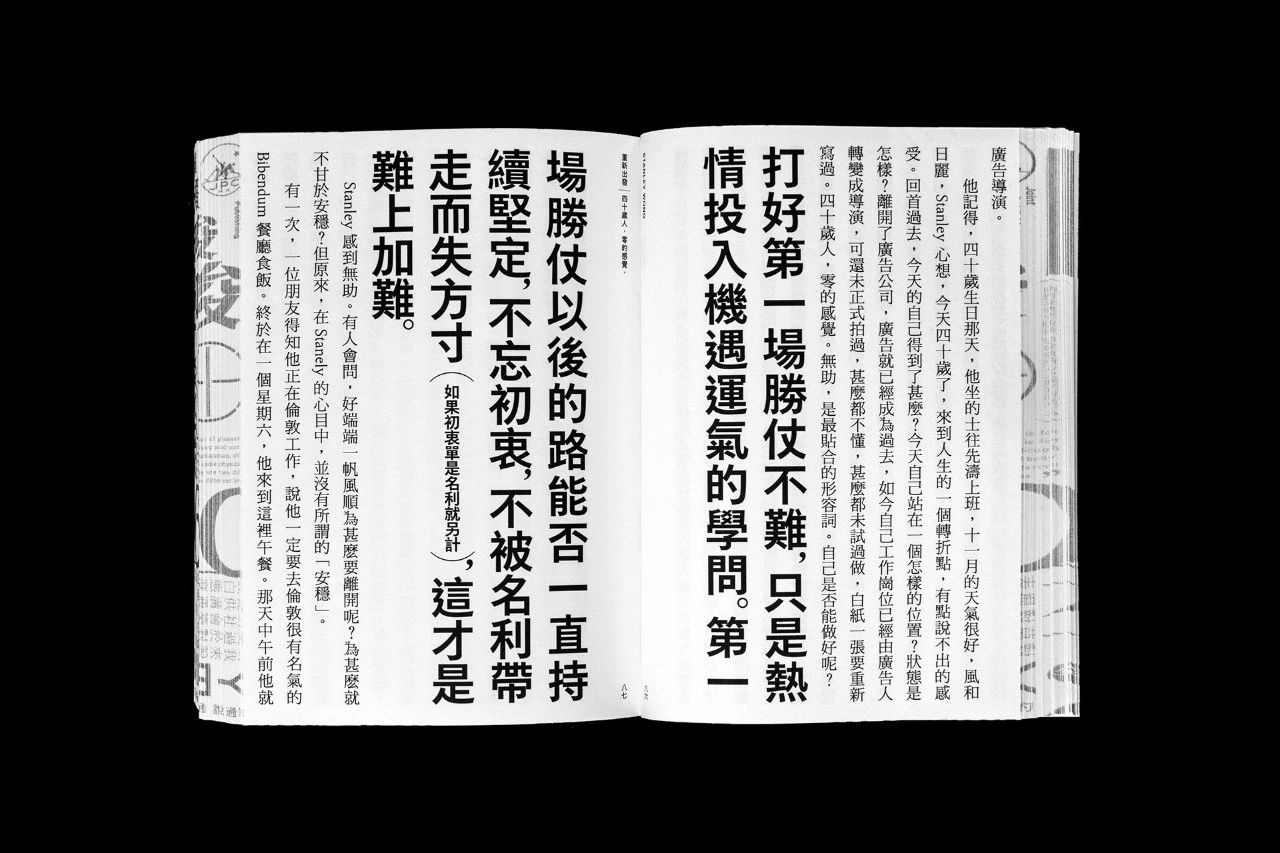 廣告導演。
他記得，四十歲生日那天，他坐的士往先濤上班，十一月的天氣很好，風和
日麗，Stanley 心想，今天四十歲了，來到人生的一個轉折點，有點說不出的感
受。回首過去，今天的自己得到了甚麼？今天自己站在一個怎樣的位置？狀態是
怎樣？離開了廣告公司，廣告就已經成為過去，如今自己工作崗位已經由廣告人
轉變成導演，可還未正式拍過，甚麼都不懂，甚麼都未試過做，白紙一張要重新
寫過。四十歲人，零的感覺。無助，是最貼合的形容詞。自己是否能做好呢？
打好第一場勝仗不難，只是熱
情投入機遇運氣的學問。第一
STANLEY WONG
重新出發｜四十歲人．零的感覺．
八七
場勝仗以後的路能否一直持
續堅定，不忘初衷，不被名利帶
走而失方寸（如果初衷單是名利就另計），這才是
難上加難。
Stanley 感到無助。有人會問，好端端一帆風順為甚麼要離開呢？為甚麼就
不甘於安穩？但原來，在 Stanely 的心目中，並沒有所謂的「安穩」。
有一次，一位朋友得知他正在倫敦工作，說他一定要去倫敦很有名氣的
Bibendum 餐廳食飯。終於在一個星期六，他來到這裡午餐。那天中午前他就
Publishing